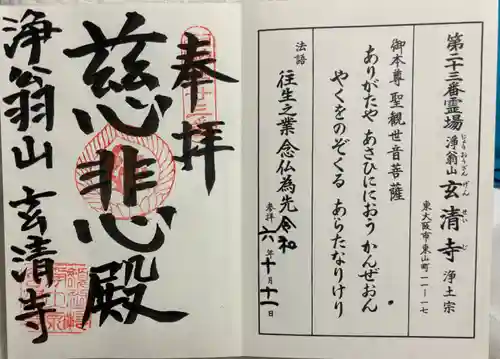 第二十三番霊場 浄翁山 玄清寺 浄土宗
じょうおうざん げんせいじ
東大阪市東山町一一-一七
御本尊 聖観世音菩薩
ありがたや あさひににおう かんぜおん
やくをのぞくる あらたなりけり
法語
往生之業 念仏為先
参拝 令和六年十月十一日
奉拝
慈悲殿
浄翁山 玄清寺